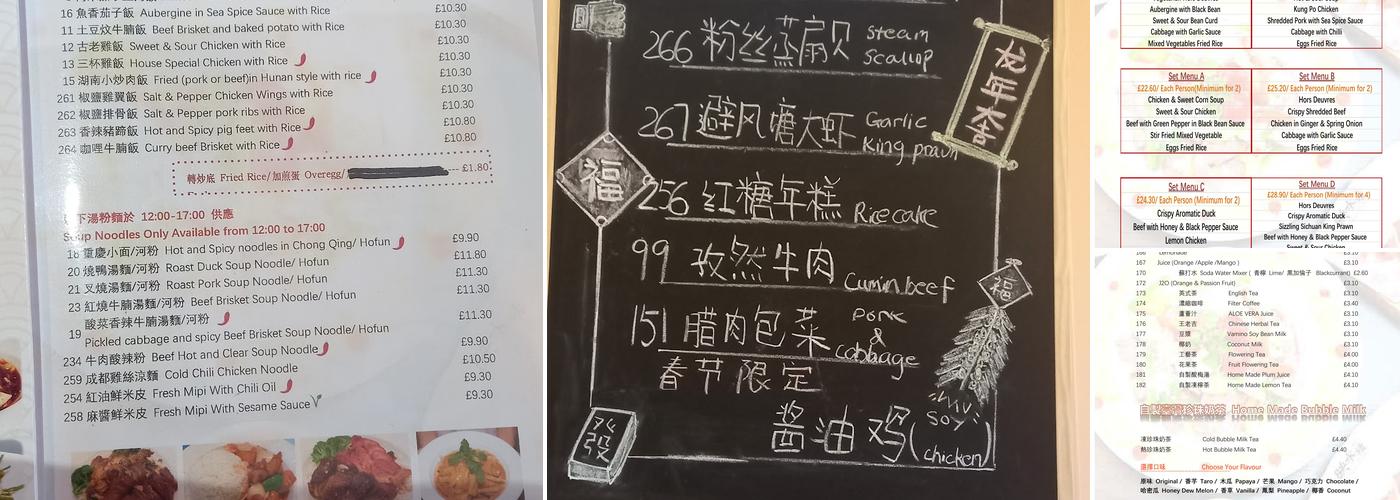 16 魚香茄子飯 Aubergine in Sea Spice Sauce with Rice £10.30
11 土豆炆牛腩飯 Beef Brisket and baked potato with rice £10.30
12 古老雞飯 Sweet & Sour Chicken with Rice £10.30
13 三杯雞飯 House Special Chicken with Rice £10.30
15 湖南小炒肉飯 Fried (pork or beef)in Hunan style with rice £10.30
261 椒鹽雞翼飯 Salt & Pepper Chicken Wings with Rice £10.30
262 椒鹽排骨飯 Salt & Pepper pork ribs with Rice £10.30
263 香辣豬蹄飯 Hot and Spicy pig feet with Rice £10.80
264 咖哩牛腩飯 Curry beef Brisket with Rice £10.80
轉炒底 Fried Rice/ 加煎蛋 Overegg/ --- £1.80
下湯粉麵於 12:00-17:00 供應
Soup Noodles Only Available from 12:00 to 17:00
18 重慶小面/河粉 Hot and Spicy noodles in Chong Qing/ Hofun £9.90
20 燒鴨湯麵/河粉 Roast Duck Soup Noodle/ Hofun £11.80
21 叉燒湯麵/河粉 Roast Pork Soup Noodle/ Hofun £11.30
23 紅燒牛腩湯麵/河粉 Beef Brisket Soup Noodle/ Hofun £11.30
19 酸菜香辣牛腩湯麵/河粉 £11.30
Pickled cabbage and spicy Beef Brisket Soup Noodle/ Hofun
234 牛肉酸辣粉 Beef Hot and Clear Soup Noodle £9.90
259 成都雞絲涼麵 Cold Chili Chicken Noodle £10.50
254 紅油鮮米皮 Fresh Mipi With Chili Oil £9.30
258 麻醬鮮米皮 Fresh Mipi With Sesame Sauce £9.30
266 粉丝蒸扇贝 Steam Scallop
267 避风塘大虾 Garlic King prawn
256 红糖年糕 Rice cake
99 孜然牛肉 Cumin beef
151 腊肉包菜 Pork & cabbage
春节限定
酱油鸡 (Soy chicken)
龙年大吉
福
福
發
Aubergine with Black Bean
Sweet & Sour Bean Curd
Cabbage with Garlic Sauce
Mixed Vegetables Fried Rice
Kung Po Chicken
Shredded Pork with Sea Spice Sauce
Cabbage with Chilli
Eggs Fried Rice
Set Menu A
£22.60/ Each Person(Minimum for 2)
Chicken & Sweet Corn Soup
Sweet & Sour Chicken
Beef with Green Pepper in Black Bean Sauce
Stir Fried Mixed Vegetable
Eggs Fried Rice
Set Menu B
£25.20/ Each Person (Minimum for 2)
Hors Deuvres
Crispy Shredded Beef
Chicken in Ginger & Spring Onion
Cabbage with Garlic Sauce
Eggs Fried Rice
Set Menu C
£24.30/ Each Person (Minimum for 2)
Crispy Aromatic Duck
Beef with Honey & Black Pepper Sauce
Lemon Chicken
Set Menu D
£28.90/ Each Person (Minimum for 4)
Hors Deuvres
Crispy Aromatic Duck
Sizzling Sichuan King Prawn
Beef with Honey & Black Pepper Sauce
Sweet & Sour Chicken
166 Lemonade £3.10
167 Juice (Orange /Apple /Mango ) £3.10
170 蘇打水 Soda Water Mixer ( 青檸 Lime/ 黑加倫子 Blackcurrant) £2.60
172 J2O (Orange & Passion Fruit) £3.10
173 英式茶 English Tea £3.10
174 濃縮咖啡 Filter Coffee £3.40
175 蘆薈汁 ALOE VERA Juice £3.10
176 王老吉 Chinese Herbal Tea £3.10
177 豆漿 Vamino Soy Bean Milk £3.10
178 椰奶 Coconut Milk £3.10
179 工藝茶 Flowering Tea £4.00
180 花果茶 Fruit Flowering Tea £4.00
181 自製酸梅湯 Home Made Plum Juice £4.10
182 自製凍檸茶 Home Made Lemon Tea £4.10
Home Made Bubble Milk
凍珍珠奶茶 Cold Bubble Milk Tea £4.40
熱珍珠奶茶 Hot Bubble Milk Tea £4.40
選擇口味 Choose Your Flavour
原味 Original / 香芋 Taro / 木瓜 Papaya / 芒果 Mango / 巧克力 Chocolate /
哈密瓜 Honey Dew Melon / 香草 Vanilla / 鳳梨 Pineapple / 椰香 Coconut